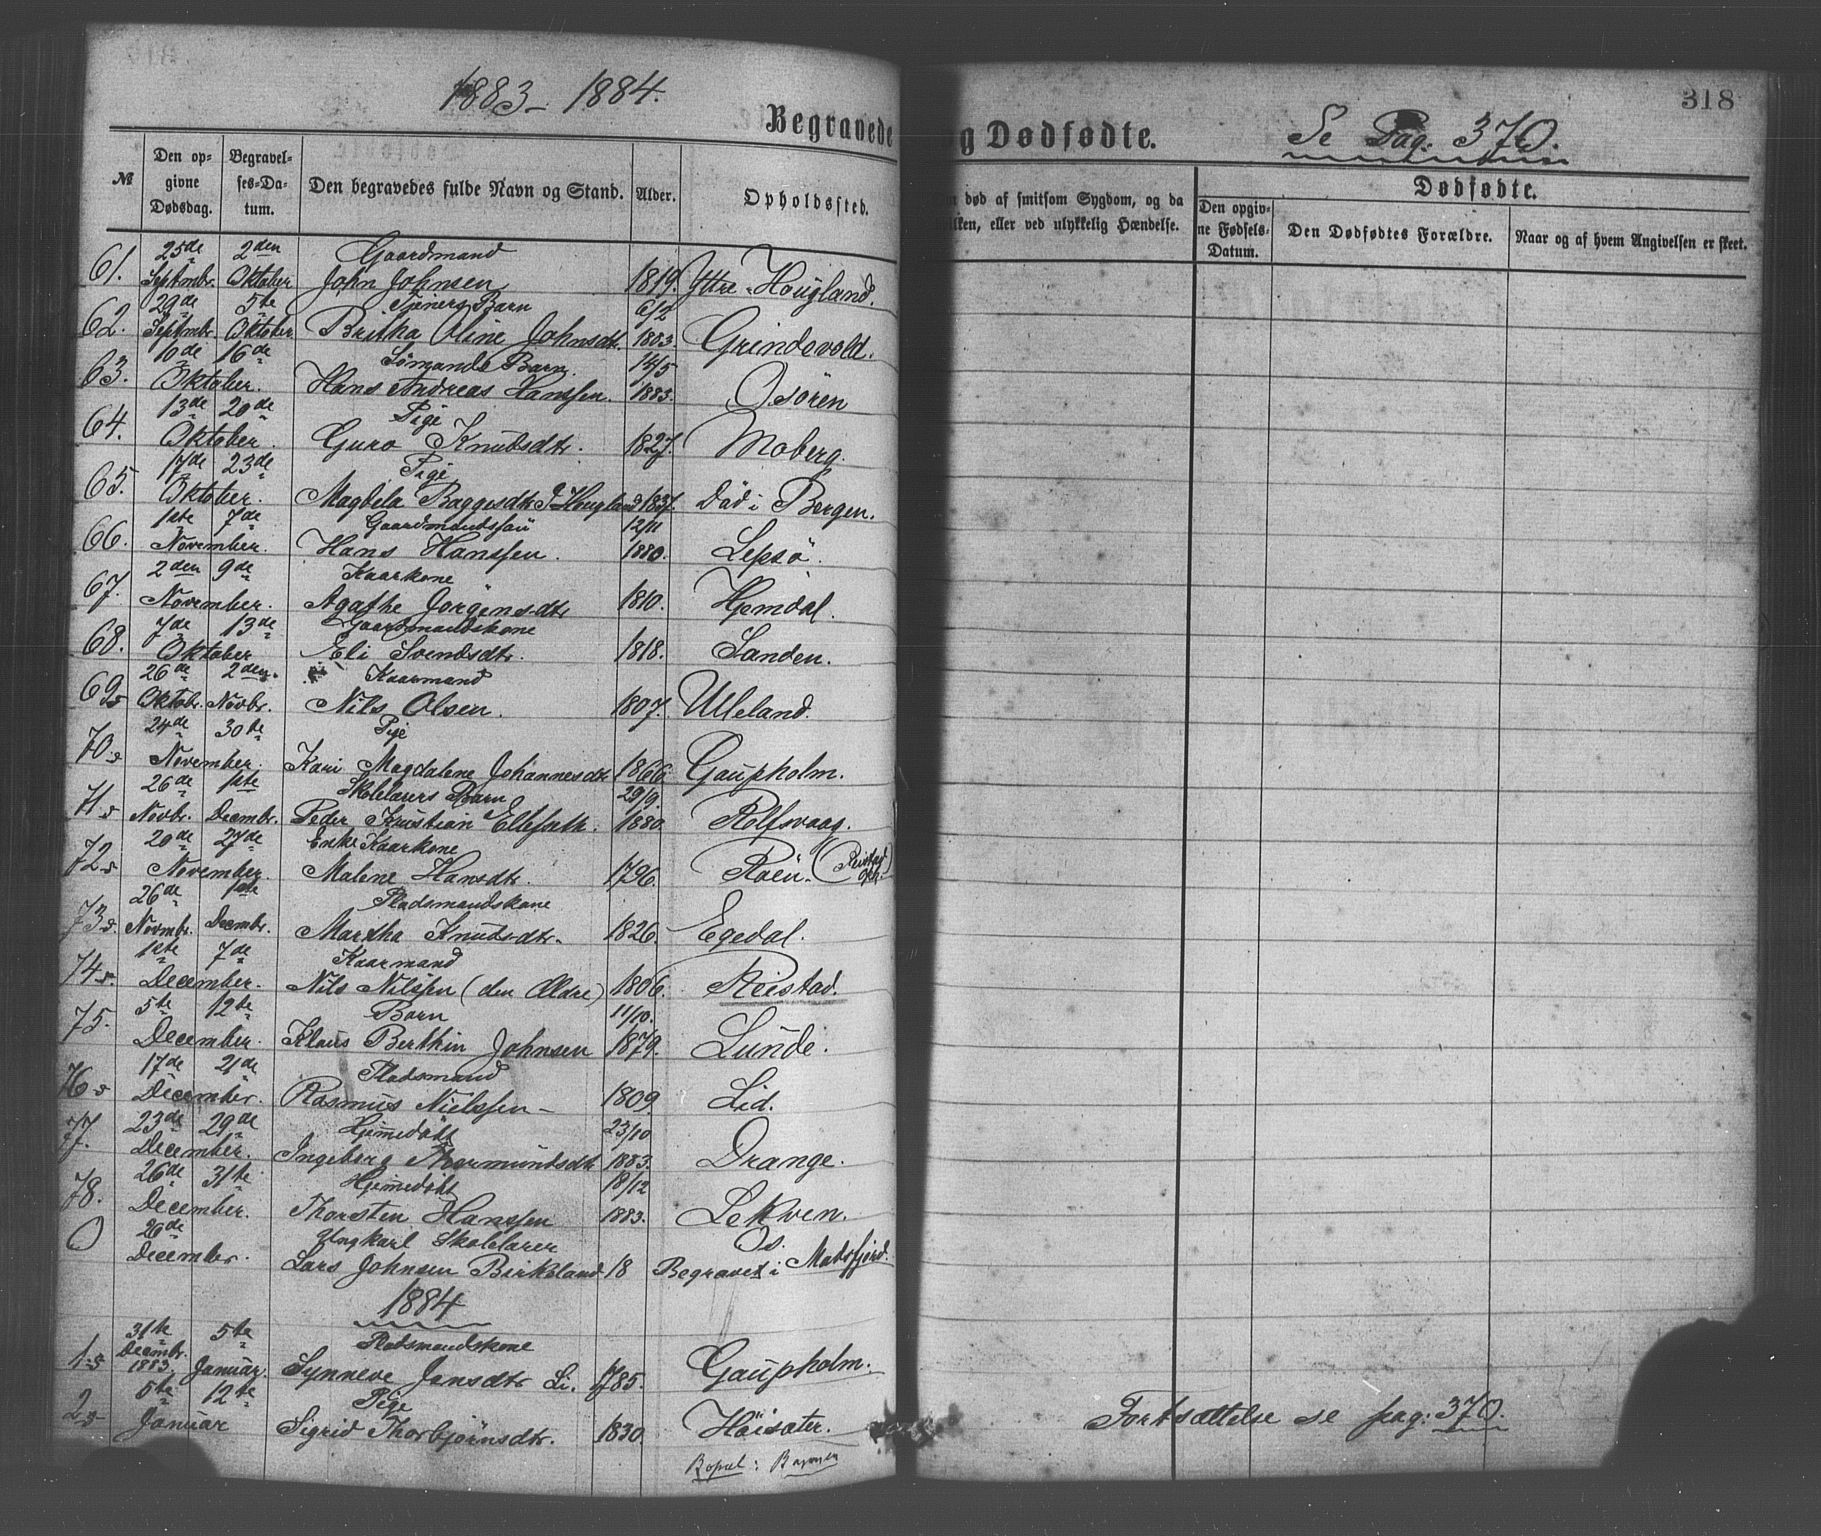 1883 - 1884.
318
Begravede og Dødfødte.
Se Pag: 370.
№
Den opgivne Dødsdag.
Begravelses-Datum.
Den begravedes fulde Navn og Stand.
Alder.
Opholdssted.
død af smitsom Sygdom, og da
hvilken, eller ved ulykkelig Hændelse.
Dødfødte.
Den opgivne Fødsels-Datum.
Den Dødfødtes Forældre.
Naar og af hvem Angivelsen er skeet.
25de 2den Gaardmand
61. Septmbr. Oktober John Johnsen 1819. Yttre Hougland.
29de 5te Tjeners Barn 6/2
62. Septmbr. Oktober Britha Oline Johnsdtr. 1883. Grindevold.
10de 16de Sömands Barn. 14/5
63. Oktober. Hans Andreas Hanssen. 1883. Osören
13de 20de Pige
64. Oktober. Guro Knudsdtr. 1827. Moberg.
17de 23de Pige
65. Oktober. Magdela Baggesdtr Hougland 1837. Död i Bergen.
1ste 7de Gaardmandssön 12/11
66. November. Hans Hanssen. 1880. Lepsö.
2den 9de Kaarkone
67. November. Agathe Jörgensdtr 1810. Hjemdal.
7de 13de Gaardmandskone
68. Oktober Eli Svendsdtr. 1818. Sanden.
26de 2den. Kaarmand
69. Oktobr. Novbr. Nils Olsen. 1807. Ulleland.
24de 30te Pige
70. November. Kari Magdalene Johannesdtr 1866. Gaupholm.
26de 1ste Skolelærers Barn 29/9.
71. Novbr. Decembr. Peder Kristian Ellefseth. 1880. Rolfsvaag.
20de 27de Enke Kaarkone
72. November. Malene Hansdtr. 1796. Röen. (Reistad
26de 1ste Pladsmandskone
73. Novmbr. Decmbr. Martha Knudsdtr. 1826. Egedal.
1ste 7de Kaarmand
74. December. Nils Nilssen (den Ældre) 1806. Reistad.
5te 12te Barn 11/10.
75. December. Klaus Berthin Johnsen 1879. Lunde.
17de 21de Pladsmand
76. December. Rasmus Nielssen - 1809 Lid.
23de 29de Hjemmedöbt 23/10
77. December. Ingeborg Thormundsdtr 1883. Drange.
26de 31te Hjemmedöbt 18/12
78. December. Thorsten Hanssen 1883. Lekven.
0 26de Ungkarl Skolelærer Os.
December. Lars Johnsen Birkeland 18 Begravet i Matrefjord.
1884
31te 5te Pladsmandskone
1. Decembr. 1883. Januar. Synneve Jensdtr Li. 1785. Gaupholm.
5te 12te Pige
2. Januar Sigrid Thorbjörnsdtr. 1830. Höisæter.
Bopæl:
Fortsættelse se pag: 370.